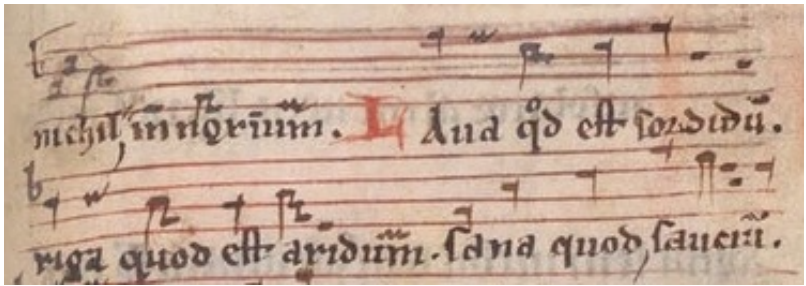 nichil, innoxiu̅m̅. L Aua qͦd est sordidu̅.
riga quod est aridu̅m̅. sana quod, sauciu̅.